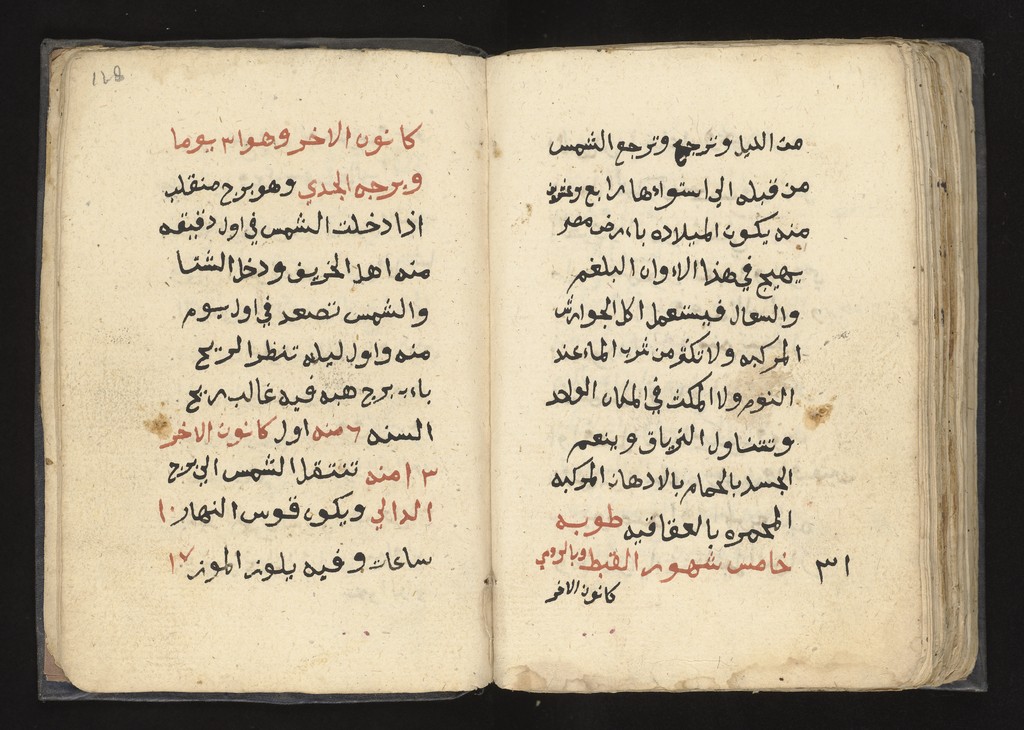 من الليل وترجع وترجع الشمس
من قبله الي استواءها رابع وعشرين
منه يكون الميلاده باءرض مصر
يهيج في هذا الاوان البلغم
والسعال فيستعمل اكل الجوارش
المركبه ولا تكثر من شرب الماء عند
النوم ولا المكث في المكان الواحد
وتتناول الترياق وينعم
الجسد بالحمام بالادهان المركبه
المخمره بالعقاقيه طوبه
خامس شهور القبط وبالرومي
كانون الاخر
١٣١
128
كانون الاخر وهو ٣١ يوما
وبرجه الجدي وهو برج منقلب
اذا دخلت الشمس في اول دقيقه
منه اهل الخريف ودخل الشتا
والشمس تصعد في اول يوم
منه واول ليله تنظر الريح
باءي برج هبه فيه غالب ريح
السنه ٦ منه اول كانون الاخر
١٣ منه تنتقل الشمس الي برج
الدالي ويكون قوس النهار ١٠
ساعات وفيه يلوز الموز ١٧